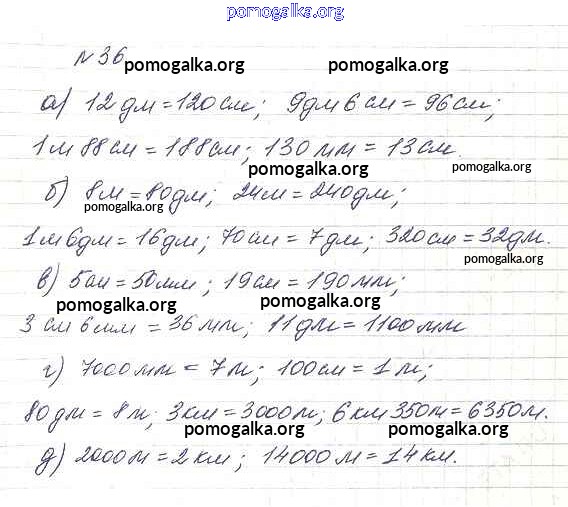 pomogalka.org
№36
pomogalka.org pomogalka.org
а) 12 дм = 120 см; 9 дм 6 см = 96 см;
1 м 88 см = 188 см; 130 мм = 13 см.
pomogalka.org pomogalka.org
б) 8 м = 80 дм; 24 м = 240 дм;
pomogalka.org
1 м 6 дм = 16 дм; 70 см = 7 дм; 320 см = 32 дм.
pomogalka.org
в) 5 см = 50 мм; 19 см = 190 мм;
pomogalka.org pomogalka.org
3 см 6 мм = 36 мм; 11 дм = 1100 мм
г) 7000 мм = 7 м; 100 см = 1 м;
80 дм = 8 м; 3 км = 3000 м; 6 км 350 м = 6350 м.
pomogalka.org pomogalka.org
д) 2000 м = 2 км; 14000 м = 14 км.